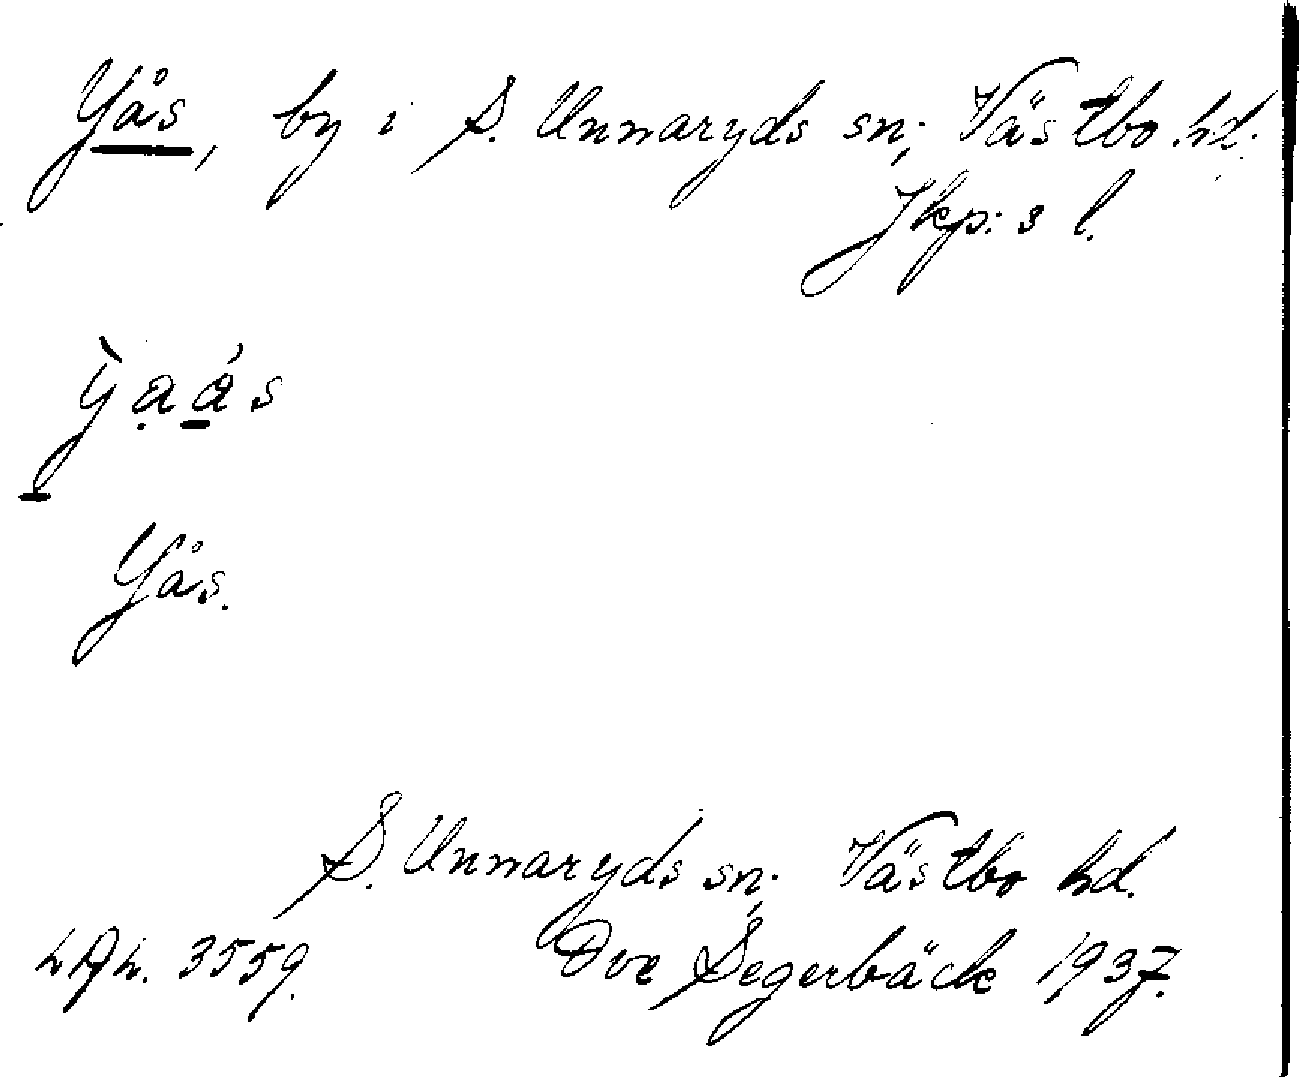 Yås, by i S. Unnaryds sn; Västbo hd.
Jkp:s l.
Yås.
S. Unnaryds sn; Västbo hd.
3559. Ove Segerbäck 1937.